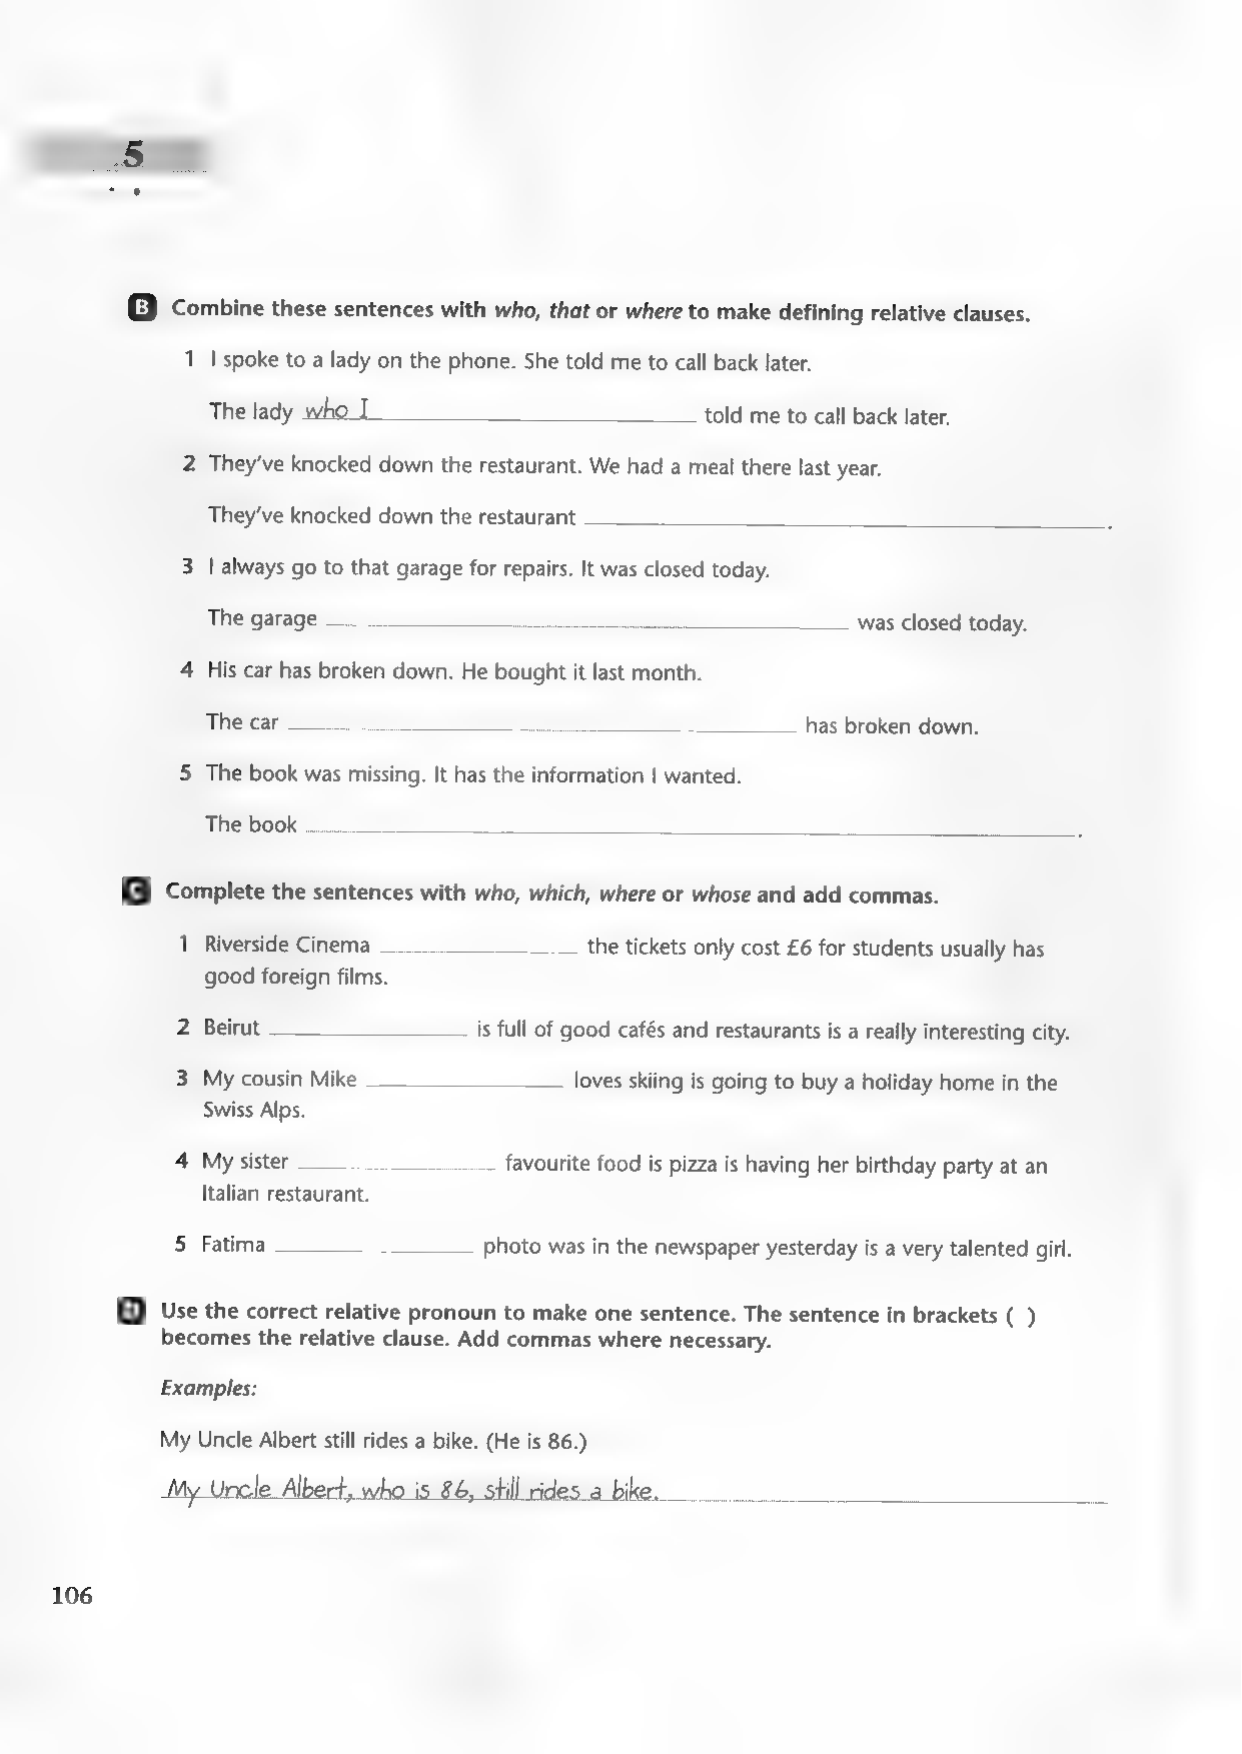 5
B Combine these sentences with who, that or where to make defining relative clauses.
1 I spoke to a lady on the phone. She told me to call back later.
The lady who I told me to call back later.
2 They've knocked down the restaurant. We had a meal there last year.
They've knocked down the restaurant .
3 I always go to that garage for repairs. It was closed today.
The garage was closed today.
4 His car has broken down. He bought it last month.
The car has broken down.
5 The book was missing. It has the information I wanted.
The book .
C Complete the sentences with who, which, where or whose and add commas.
1 Riverside Cinema the tickets only cost £6 for students usually has
good foreign films.
2 Beirut is full of good cafés and restaurants is a really interesting city.
3 My cousin Mike loves skiing is going to buy a holiday home in the
Swiss Alps.
4 My sister favourite food is pizza is having her birthday party at an
Italian restaurant.
5 Fatima photo was in the newspaper yesterday is a very talented girl.
D Use the correct relative pronoun to make one sentence. The sentence in brackets ( )
becomes the relative clause. Add commas where necessary.
Examples:
My Uncle Albert still rides a bike. (He is 86.)
My Uncle Albert, who is 86, still rides a bike.
106